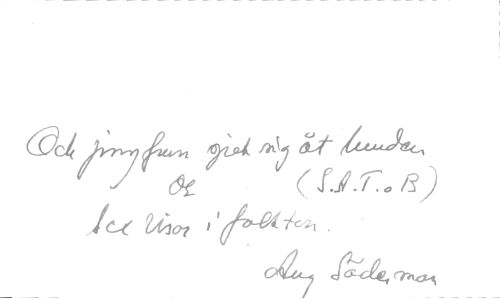 Och jungfrun gick sig åt lunden
Os (S.A.T.o B)
Sex visor i folkton.
Aug Söderman